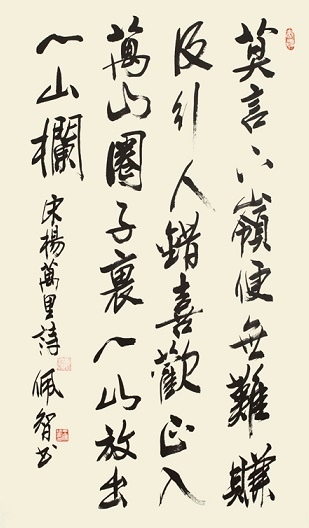 莫言下嶺便無難賺
得行人錯喜歡正入
萬山圈子裏一山放出
一山攔 宋楊萬里詩 佩智书